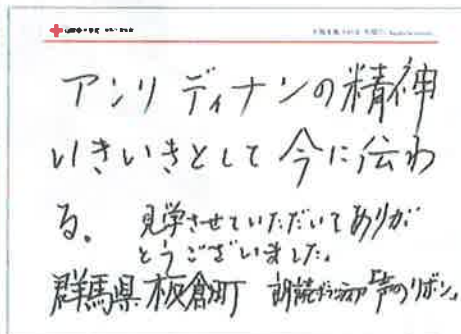 アンリ ディナンの精神
いきいきとして今に伝わ
る。 見学させていただいてありが
とうございました。
群馬県板倉町 朗読ボランティア「声のリボン」